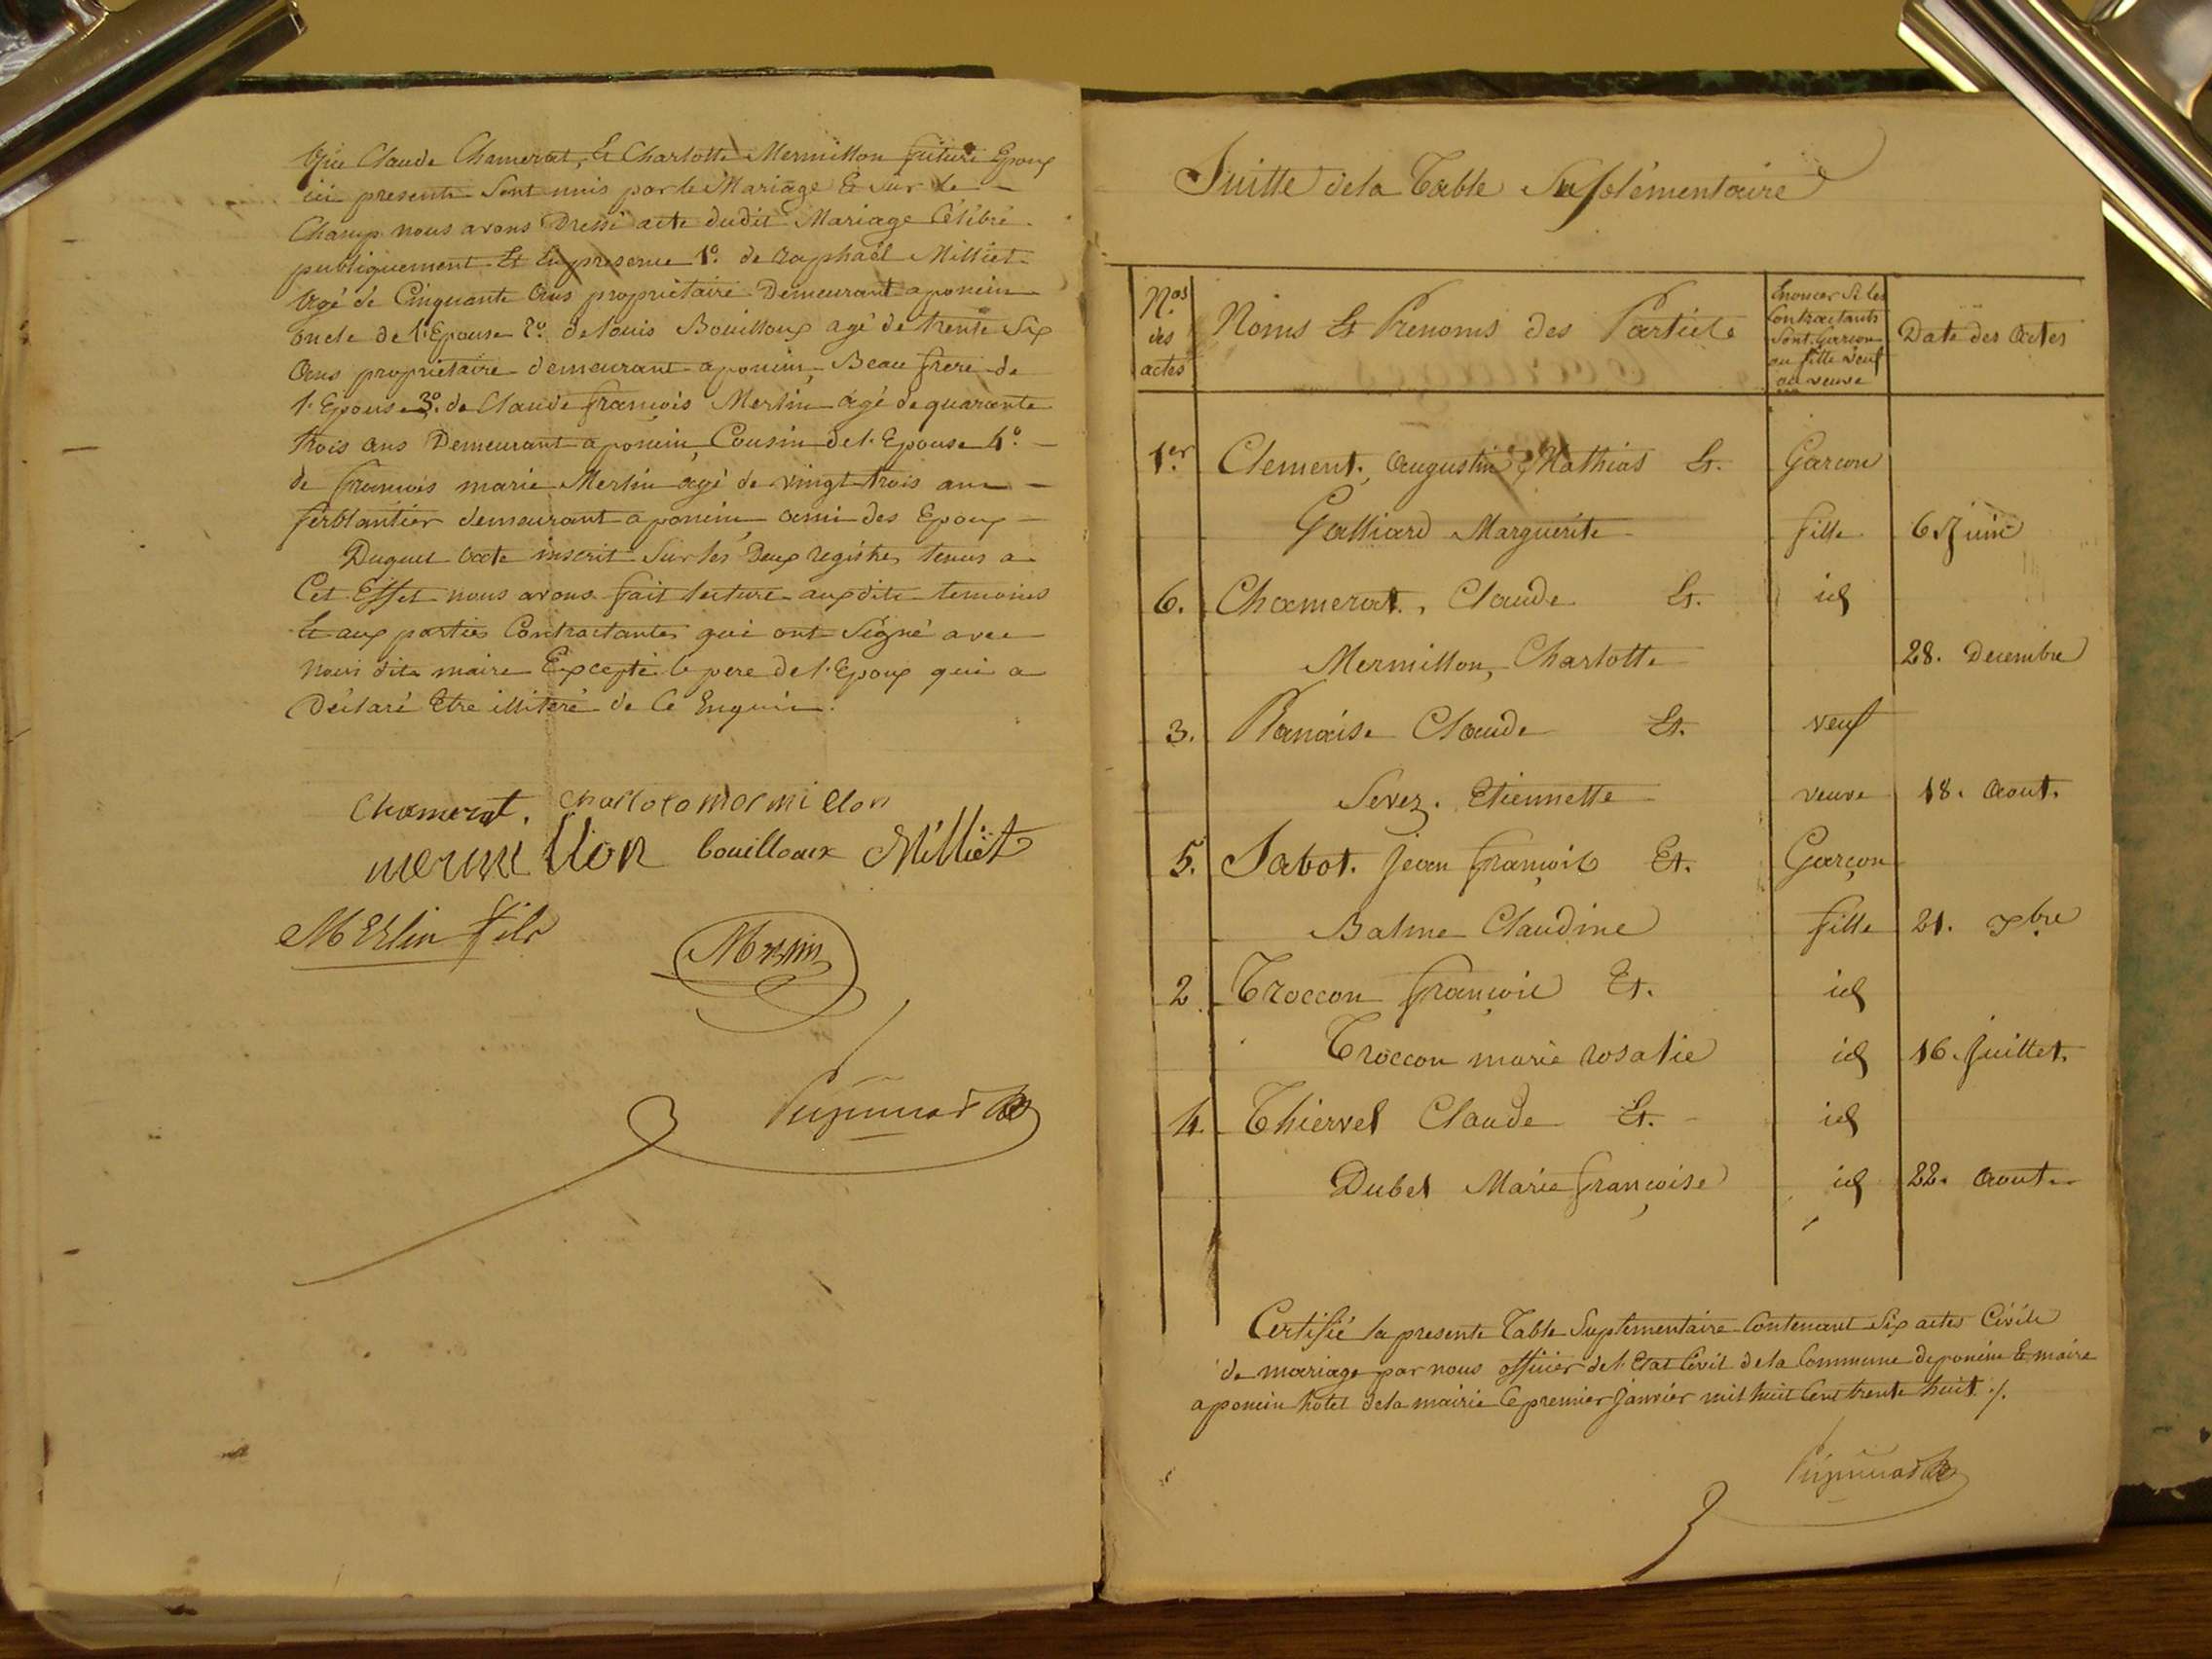 Que Claude Chamerat, Et Charlotte Mermillon future Epoux
ici presente Sont unis par le Mariage Et sur le
Champ nous avons Dressé acte dudit Mariage Célébré
publiquement Et En presence 1º. de Raphaël Milliet
Agé de Cinquante Ans propriétaire Demeurant a poncin
oncle de l'Epouse 2º. de louis Bouilloux agé de trente Six
Ans propriétaire demeurant a poncin, Beau frere de
l'Epouse 3º. de Claude françois Merlin agé de quarante
trois ans Demeurant a poncin, Cousin de l'Epouse 4º.
de françois marie Merlin agé de vingt trois ans
ferblantier demeurant a poncin ami des Epoux
Duquel acte inscrit Sur les Deux registres tenus a
Cet Effet nous avons fait lecture auxdits temoins
Et aux parties Contractantes qui ont Signé avec
Nous dits maire Excepté le pere de l'Epoux qui a
Déclaré Etre illiteré de Ce Enquis.
Chamerat. Charloto mormillon
mermillon bouilloux Milliet
MErlin fils
Merlin
Suitte de la Table Suplémentaire
Nos des actes
Noms Et Prenoms des Parties
Enoncer Si les Contractants Sont Garcon ou fille Veuf ou veuve
Date des Actes
1er. Clement, Augustin Mathias Et. Garcon
Galliard Marguerite fille 6. Juin
6. Chamerat, Claude Et. id
Mermillon, Charlotte 28. Decembre
3. Panaise Claude Et. veuf
Sevez. Etiennette veuve 18. Aout.
5. Sabot. Jean françois Et. Garçon
Balme Claudine fille 21. 7bre
2 Troccon françois Et. id
Troccon marie rosalie id 16. Juillet.
4. Thiervel Claude Et. id
Dubel Marie françoise id 22. Aout.
Certifié la presente Table Suplementaire Contenant Six actes Civile
de mariage par nous officier de l'Etat Civil de la Commune de poncin Et maire
a poncin hotel de la mairie le premier Janvier mil huit Cent trente huit ./.